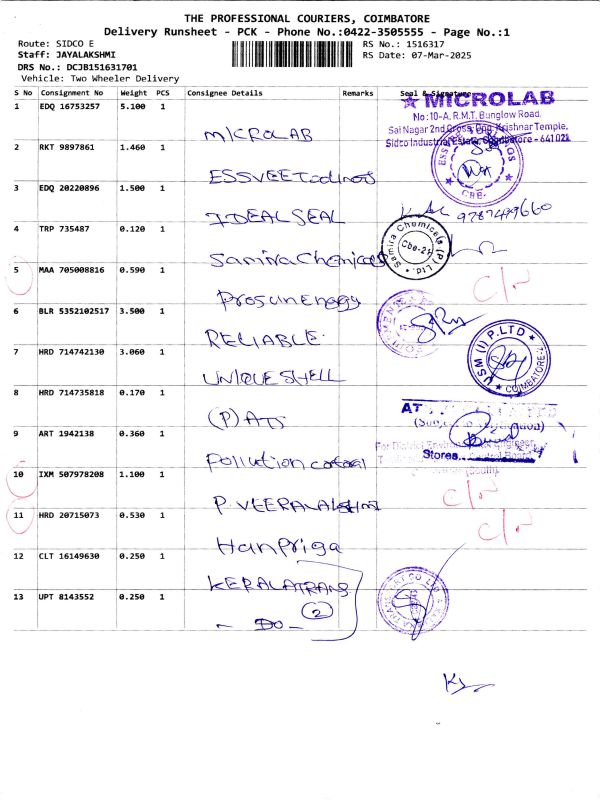 THE PROFESSIONAL COURIERS, COIMBATORE
Delivery Runsheet - PCK - Phone No.:0422-3505555 - Page No.:1
Route: SIDCO E
RS No.: 1516317
Staff: JAYALAKSHMI
RS Date: 07-Mar-2025
DRS No.: DCJB151631701
Vehicle: Two Wheeler Delivery
S No Consignment No Weight PCS Consignee Details Remarks Seal & Signature
1 EDQ 16753257 5.100 1
MICROLAB
★ MICROLAB
No:10-A, R.M.T. Bunglow Road,
Sai Nagar 2nd Cross, Opp. Krishnar Temple,
Sidco Industrial Estate, Coimbatore - 641 021.
2 RKT 9897861 1.460 1
ESSVEE
CBE-
3 EDQ 20220896 1.500 1
IDEAL SEAL
9787499660
4 TRP 735487 0.120 1
Samira Chemicals
Samira Chemicals (P) Ltd.
Cbe-21
5 MAA 705008816 0.590 1
Prosun Enagy
6 BLR 5352102517 3.500 1
RELIABLE
7 HRD 714742130 3.060 1
UNIQUE SHELL
USM (I) P.LTD
COIMBATORE
8 HRD 714735818 0.170 1
(P) ATS
AT
9 ART 1942138 0.360 1
Pollution control
Stores
10 IXM 507978208 1.100 1
P. VEERALAKSHMI
11 HRD 20715073 0.530 1
Hanpriga
12 CLT 16149630 0.250 1
KERALA TRANS
2
13 UPT 8143552 0.250 1
- DO -